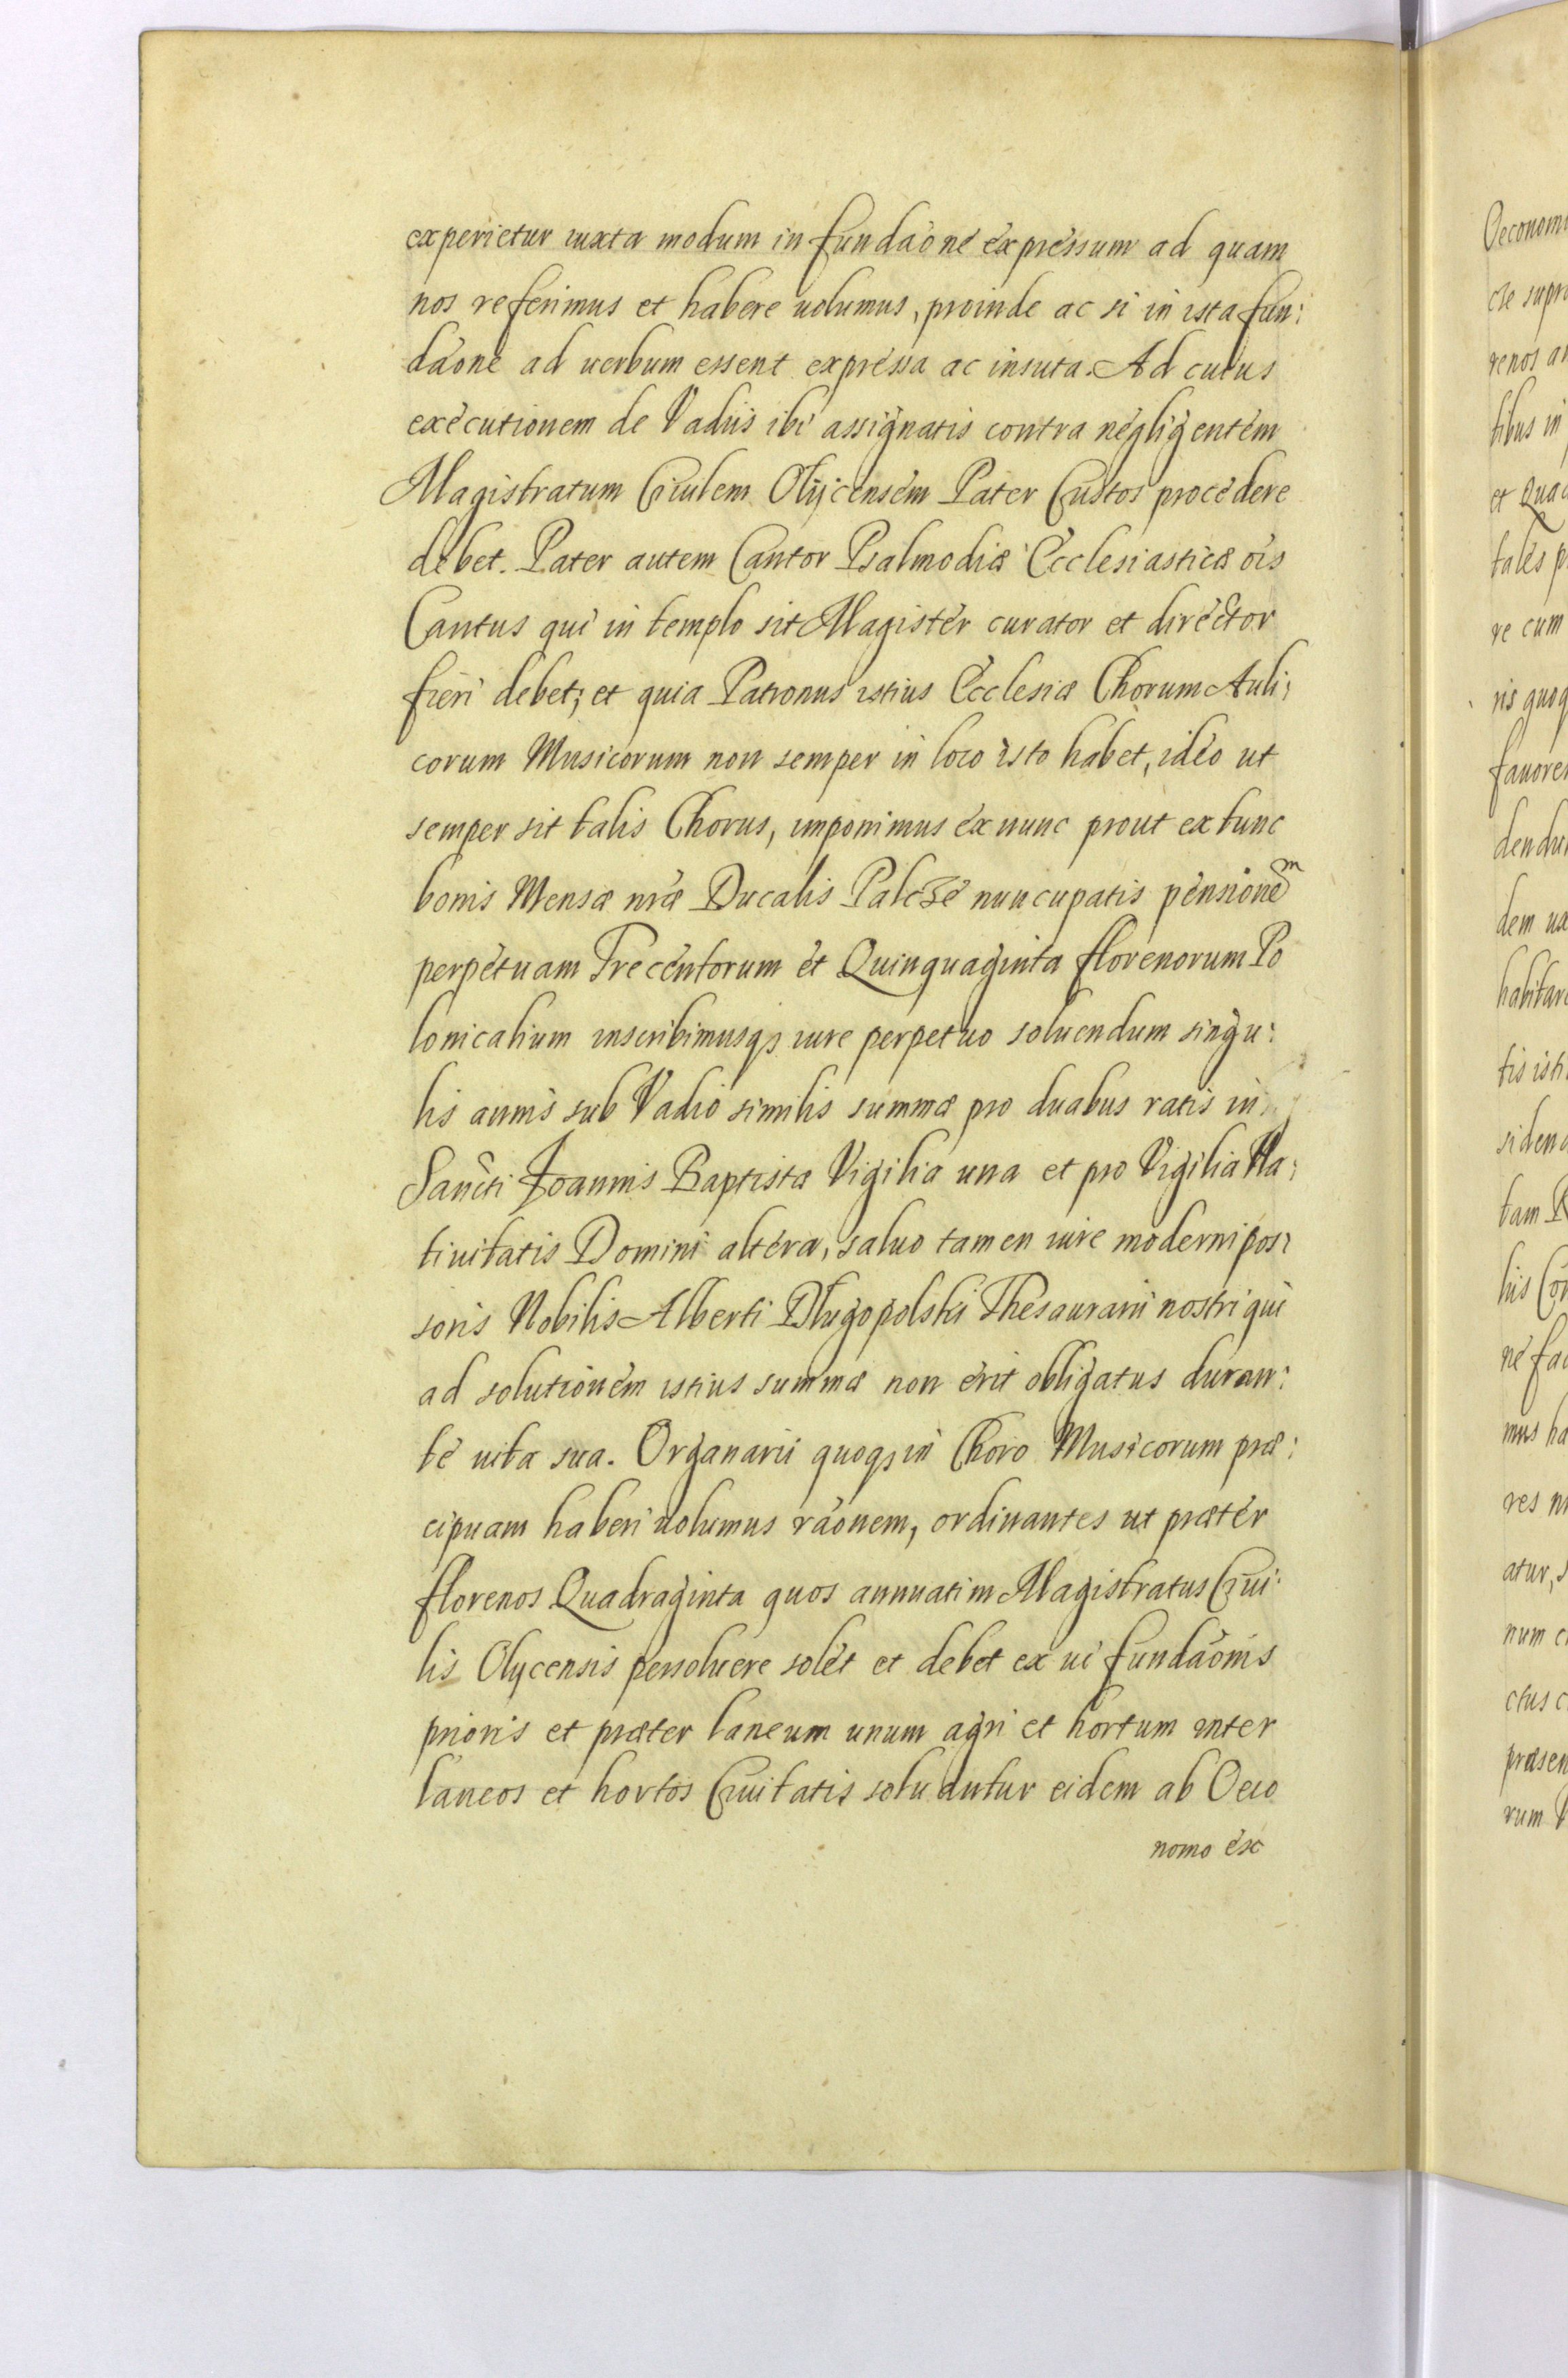 experietur iuxta modum in fundaõne expressum ad quam
nos referimus et habere uolumus, proinde ac si in ista fun:
daõne ad uerbum essent expressa ac insuta. Ad cuius
executionem de Vadiis ibi assignatis contra negligentem
Magistratum Ciuilem Olijcensem Pater Custos procedere
debet. Pater autem Cantor Psalmodiæ Ecclesiasticæ oĩs
Cantus qui in templo sit Magister curator et director
fieri debet; et quia Patronus istius Ecclesiæ Chorum Auli;
corum Musicorum non semper in loco isto habet, ideo ut
semper sit talis Chorus, imponimus ex nunc prout ex tunc
bonis Mensæ nr̃æ Ducalis Palcze nuncupatis pensionem
perpetuam Trecentorum et Quinquaginta florenorum Po
lonicalium inscribimusqȝ iure perpetuo soluendum singu:
lis annis sub Vadio similis summæ pro duabus ratis in
Sancti Joannis Baptistæ Vigilia una et pro Vigilia Na:
tiuitatis Domini altera, saluo tamen iure moderni pos:
soris Nobilis Alberti Dlugopolski Thesaurarii nostri qui
ad solutionem istius summæ non erit obligatus duran:
te uita sua. Organarii quoqȝ in Choro Musicorum præ:
cipuam haberi uolumus raõnem, ordinantes ut præter
florenos Quadraginta quos annuatim Magistratus Ciui:
lis Olycensis persoluere solet et debet ex ui fundaõnis
prioris et præter laneum unum agri et hortum inter
laneos et hortos Ciuitatis soluantur eidem ab Oeco
nomo ex
Oeconom
cze supra
renos an
tibus in
et Qua
tales p
re cum
ris quoq
fauore
dendu
dem ua
habitar
tis isti
siden
tam
lis Co
ne fa
mus ha
res n
atur, s
num c
ctus c
præsen
rum